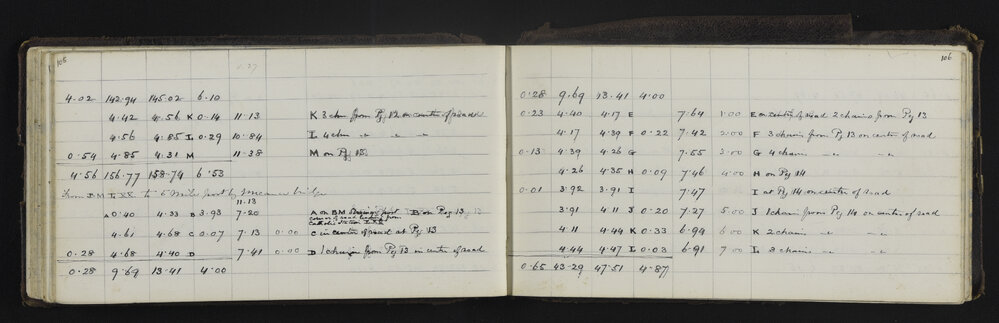 105
4.02 142.94 145.02 6.10
4.42 4.56 K 0.14 11.13 K 3 chn from Pg 12 on centre of road
4.56 4.85 L 0.29 10.84 L 4 chn " " "
0.54 4.85 4.31 M 11.38 M on Pg 13
4.56 156.77 158.74 6.53
From BM to 5 Mile post by
11.13
A 0.40 4.33 B 3.93 7.20 A on BM B on Peg 13
corner of road leading from
4.61 4.68 C 0.07 7.13 0.00 C in centre of road at Pg 13
0.28 4.68 4.40 D 7.41 0.00 D 1 chain from Pg 13 in centre of road
0.28 9.69 13.41 4.00
106
0.28 9.69 13.41 4.00
0.23 4.40 4.17 E 7.64 1.00 E on centre of road 2 chains from Pg 13
4.17 4.39 F 0.22 7.42 2.00 F 3 chains from Pg 13 on centre of road
0.13 4.39 4.26 G 7.55 3.00 G 4 chains " "
4.26 4.35 H 0.09 7.46 4.00 H on Pg 14
0.01 3.92 3.91 I 7.47 I at Pg 14 on centre of road
3.91 4.11 J 0.20 7.27 5.00 J 1 chain from Pg 14 on centre of road
4.11 4.44 K 0.33 6.94 6.00 K 2 chains " "
4.44 4.47 L 0.03 6.91 7.00 L 3 chains " "
0.65 43.29 47.51 4.87